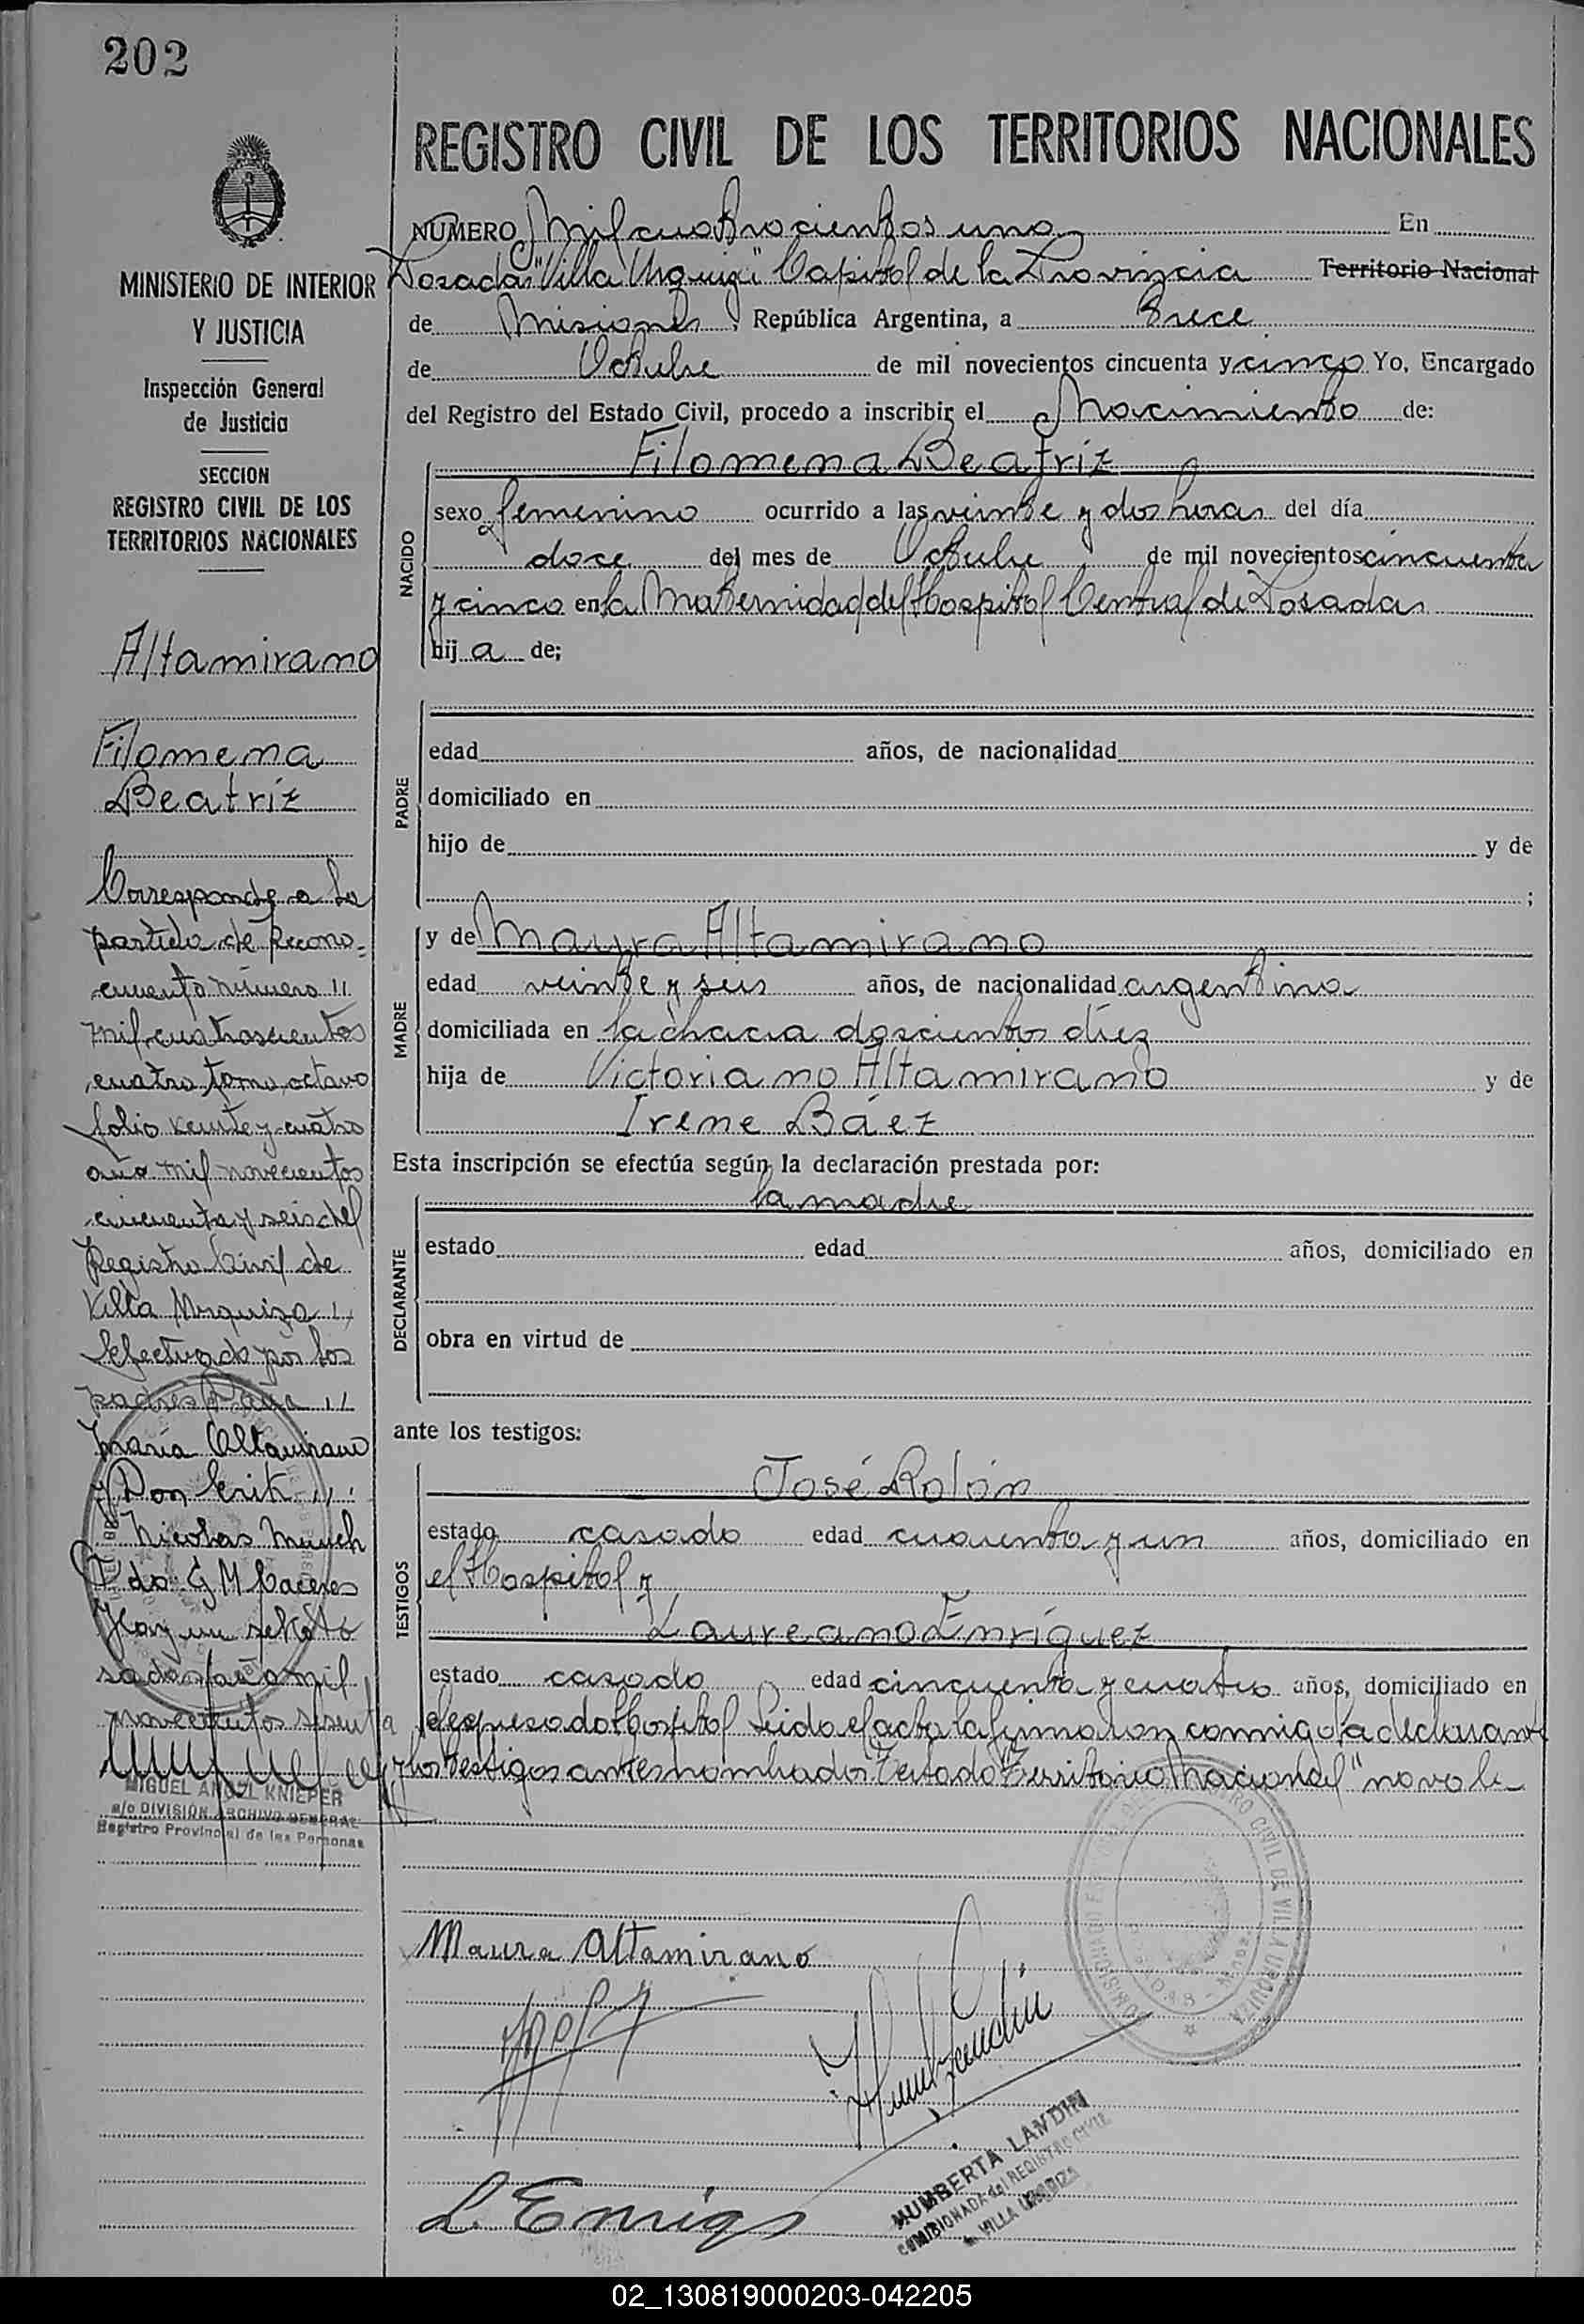 202
REGISTRO CIVIL DE LOS TERRITORIOS NACIONALES
NUMERO Mil cuatrocientos uno En
Posadas "Villa Urquiza" Capital de la Provincia Territorio Nacional
de Misiones, República Argentina, a trece
de Octubre de mil novecientos cincuenta y cinco Yo, Encargado
del Registro del Estado Civil, procedo a inscribir el Nacimiento de:
NACIDO
Filomena Beatriz
sexo femenino ocurrido a las veinte y dos horas del día
doce del mes de Octubre de mil novecientos cincuenta
y cinco en la Maternidad del Hospital Central de Posadas
hij a de;
PADRE
edad años, de nacionalidad
domiciliado en
hijo de y de
;
MADRE
y de Mayra Altamirano
edad veinte y seis años, de nacionalidad argentina
domiciliada en la chacra doscientos diez
hija de Victoriano Altamirano y de
Irene Báez
Esta inscripción se efectúa según la declaración prestada por:
DECLARANTE
la madre
estado edad años, domiciliado en
obra en virtud de
ante los testigos:
TESTIGOS
José Rolón
estado casado edad cuarenta y un años, domiciliado en
el Hospital y
Laureano Enríguez
estado casado edad cincuenta y cuatro años, domiciliado en
el expresado Hospital Leido el acta la firmaron conmigo la declarante
y los testigos antes nombrados Testado "Territorio Nacional" no vale
Maura Altamirano
L. Enrigs
HUMBERTA LANDIN
COMISIONADA del REGISTRO CIVIL
VILLA URQUIZA
REGISTRO CIVIL DE VILLA URQUIZA
MINISTERIO DE INTERIOR
Y JUSTICIA
Inspección General
de Justicia
SECCION
REGISTRO CIVIL DE LOS
TERRITORIOS NACIONALES
Altamirano
Filomena
Beatriz
Corresponde a la
partida de Recono-
cimiento número //
mil cuatroscientos
cuatro tomo octavo
folio veinte y cuatro
año mil novecientos
cincuenta y seis del
Registro Civil de
Villa Urquiza //
Efectuado por los
padres Doña //
María Altamirano
y Don Erik //
Nicolas Munch
Fdo G M Caceres
Hay un sello Po
sadas año mil
novecientos sesenta
MIGUEL ANGEL KNIEPER
a/c DIVISION ARCHIVO GENERAL
Registro Provincial de las Personas
02_130819000203-042205